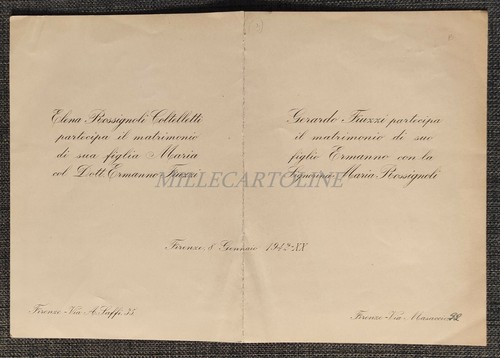 Elena Rossignoli Coltelletti
partecipa il matrimonio
di sua figlia Maria
col Dott. Ermanno Frizzi
Gerardo Frizzi partecipa
il matrimonio di suo
figlio Ermanno con la
Signorina Maria Rossignoli
MILLECARTOLINE
Firenze, 8 Gennaio 1942-XX
Firenze - Via A. Saffi 35
Firenze - Via Masaccio 92